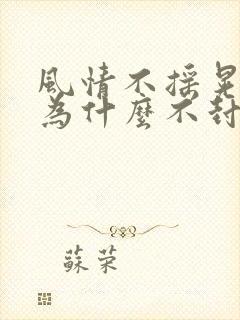 風情不搖晃
為什麼不封
蘇荣